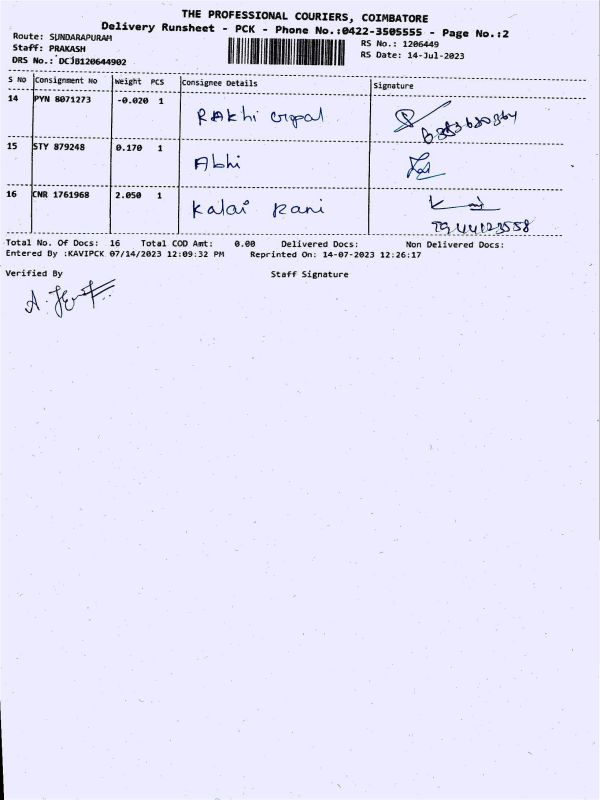 THE PROFESSIONAL COURIERS, COIMBATORE
Delivery Runsheet - PCK - Phone No.:0422-3505555 - Page No.:2
Route: SUNDARAPURAM
Staff: PRAKASH
DRS No.: DCJB120644902
RS No.: 1206449
RS Date: 14-Jul-2023
S NO Consignment No Weight PCS Consignee Details Signature
14 PYN 8071273 -0.020 1 RAkhi Gopal
15 STY 879248 0.170 1 Abhi
16 CNR 1761968 2.050 1 Kalai Rani
Total No. Of Docs: 16 Total COD Amt: 0.00 Delivered Docs: Non Delivered Docs:
Entered By :KAVIPCK 07/14/2023 12:09:32 PM Reprinted On: 14-07-2023 12:26:17
Verified By Staff Signature